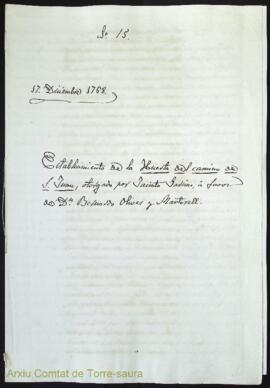 Nº 15.
17 Diciembre 1788.
Establecimiento de la Huerta del camino de
S. Juan, otorgado por Jacinto à favor
de Dn. Bernardo Olives y Martorell.
Arxiu Comtat de Torre-saura